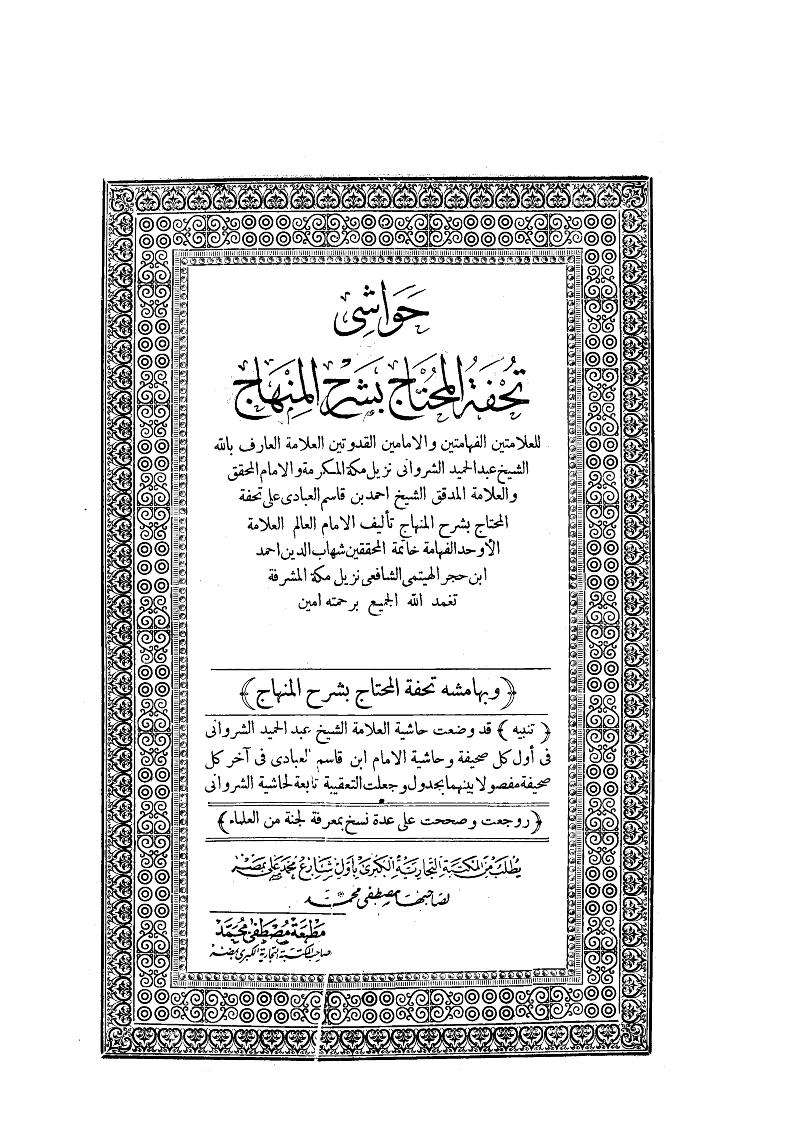 حَوَاشِى
تُحْفَةُ المُحْتَاجِ بِشَرْحِ المِنْهَاجِ
للعلامتين الفهامتين والامامين القدوتين العلامة العارف بالله
الشيخ عبد الحميد الشروانى نزيل مكة المكرمة والامام المحقق
والعلامة المدقق الشيخ احمد بن قاسم العبادى على تحفة
المحتاج بشرح المنهاج تأليف الامام العالم العلامة
الأوحد الفهامة خاتمة المحققين شهاب الدين احمد
ابن حجر الهيتمى الشافعى نزيل مكة المشرفة
تغمد الله الجميع برحمته امين
﴿ وبهامشه تحفة المحتاج بشرح المنهاج ﴾
﴿ تنبيه ﴾ قد وضعت حاشية العلامة الشيخ عبد الحميد الشروانى
فى أول كل صحيفة وحاشية الامام ابن قاسم العبادى فى آخر كل
صحيفة مفصولا بينهما بجدول وجعلت التعقيبة تابعة لحاشية الشروانى
﴿ روجعت وصححت على عدة نسخ بمعرفة لجنة من العلماء ﴾
يُطلب من المكتبة التجارية الكبرى بأول شارع محمد على بمصر
لصاحبها مصطفى محمد
مطبعة مصطفى محمد
صاحب المكتبة التجارية الكبرى بمصر